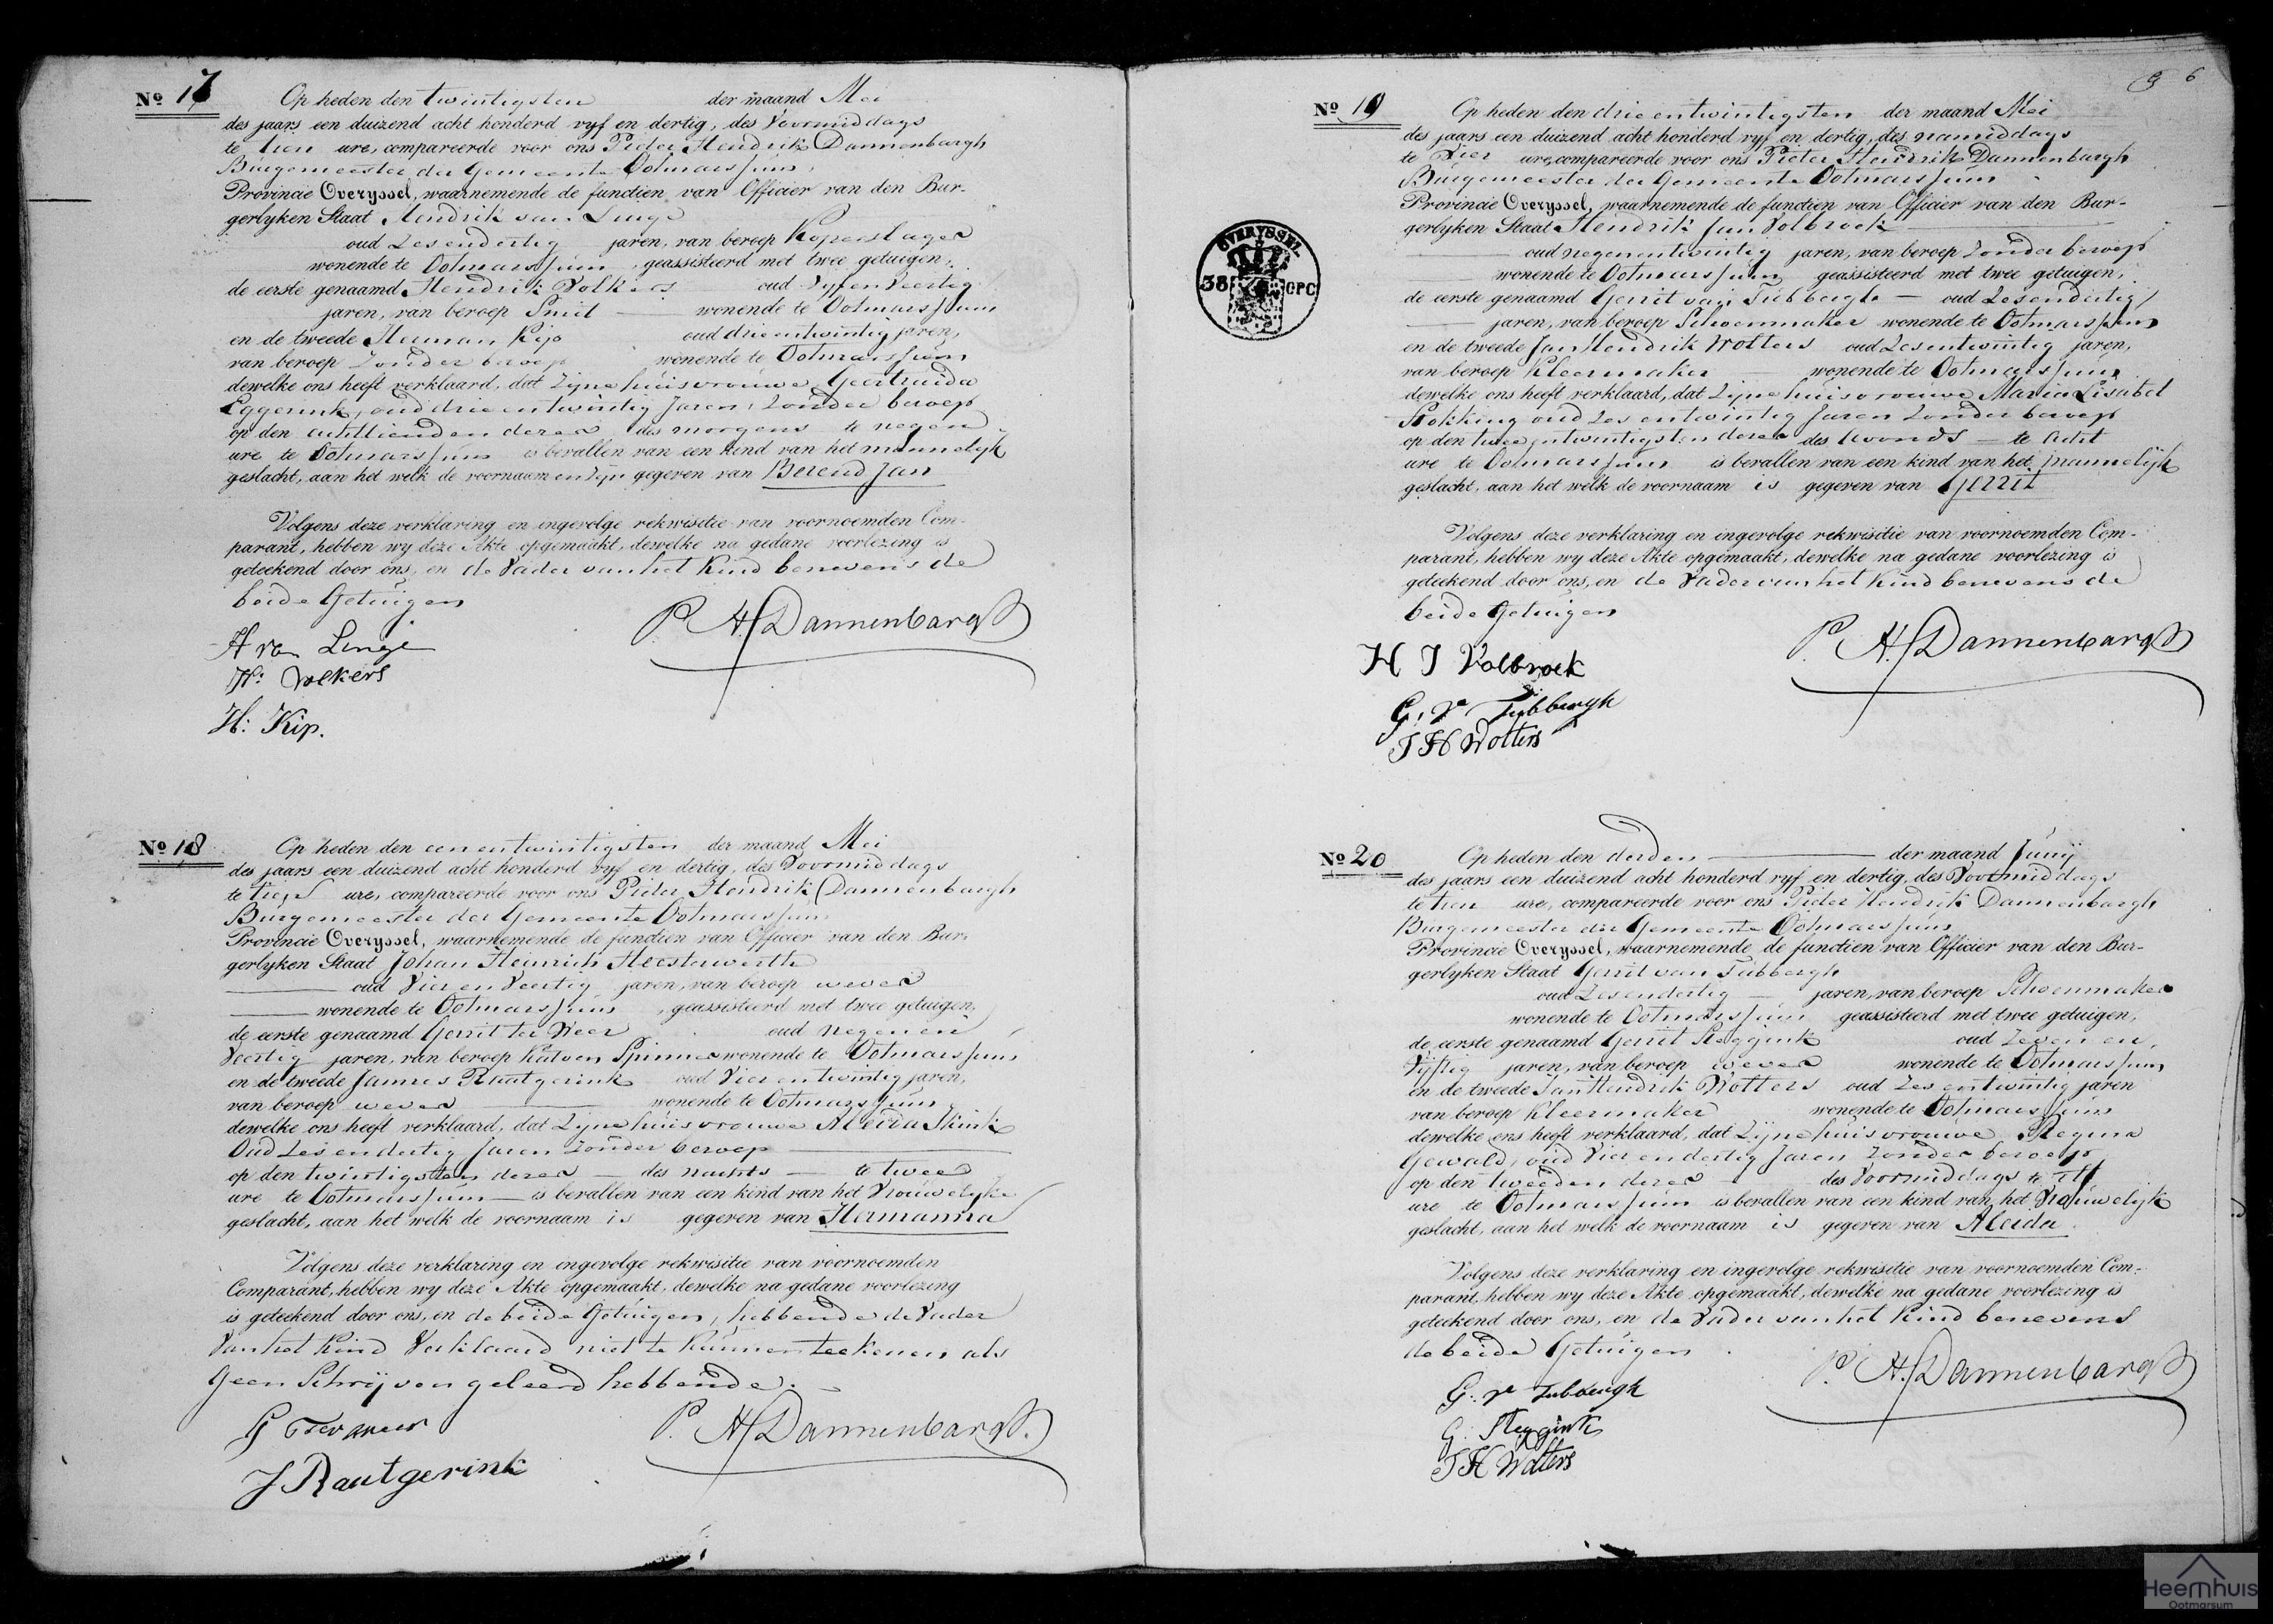 Nº 17
Op heden den twintigsten der maand Mei
des jaars een duizend acht honderd vyf en dertig, des Voormiddags
te tien ure, compareerde voor ons Pieter Hendrik Dannenbargh
Burgemeester der Gemeente Ootmarssum
Provincie Overyssel, waarnemende de functien van Officier van den Bur-
gerlyken Staat Hendrik van Linge
oud Zesendertig jaren, van beroep Koperslager
wonende te Ootmarssum, geassisteerd met twee getuigen,
de eerste genaamd Hendrik Volkers oud Vyfenveertig
jaren, van beroep Smid wonende te Ootmarssum
en de tweede Herman Kip oud drieentwintig jaren,
van beroep Zonder beroep wonende te Ootmarssum
dewelke ons heeft verklaard, dat Zyne huisvrouwe Geertruida
Eggerink, oud drieentwintig Jaren, Zonder beroep
op den achttienden dezer des morgens te negen
ure te Ootmarssum is bevallen van een kind van het mannelyk
geslacht, aan het welk de voornaam en zyn gegeven van Berend Jan
Volgens deze verklaring en ingevolge rekwisitie van voornoemden Com-
parant, hebben wy deze Akte opgemaakt, dewelke na gedane voorlezing is
geteekend door ons, en de Vader van het Kind benevens de
beide Getuigen
P. H. Dannenbargh
H van Linge
H: Volkers
H: Kip.
Nº 18
Op heden den eenentwintigsten der maand Mei
des jaars een duizend acht honderd vyf en dertig, des Voormiddags
te tien ure, compareerde voor ons Pieter Hendrik Dannenbargh
Burgemeester der Gemeente Ootmarssum
Provincie Overyssel, waarnemende de functien van Officier van den Bur-
gerlyken Staat Johan Heinrich Heesterwerth
oud Vier en Veertig jaren, van beroep wever
wonende te Ootmarssum, geassisteerd met twee getuigen,
de eerste genaamd Gerrit ter Weer oud negen en
Veertig jaren, van beroep Katoen Spinner wonende te Ootmarssum
en de tweede Jannes Rautgerink oud Vier en twintig jaren,
van beroep wever wonende te Ootmarssum
dewelke ons heeft verklaard, dat Zyne huisvrouwe Aleida
Oud Zesendertig Jaren Zonder beroep
op den twintigsten dezer des nachts te twee
ure te Ootmarssum is bevallen van een kind van het Vrouwelyke
geslacht, aan het welk de voornaam is gegeven van Hermanna
Volgens deze verklaring en ingevolge rekwisitie van voornoemden
Comparant, hebben wy deze Akte opgemaakt, dewelke na gedane voorlezing
is geteekend door ons, en de beide Getuigen, hebbende de Vader
Van het Kind Verklaard niet te Kunnen teekenen als
Geen Schrijven geleerd hebbende.
P. H. Dannenbargh.
G Ter Weer
J Rautgerink
6
Nº 19
Op heden den drieentwintigsten der maand Mei
des jaars een duizend acht honderd vyf en dertig, des namiddags
te Vier ure, compareerde voor ons Pieter Hendrik Dannenbargh
Burgemeester der Gemeente Ootmarssum
Provincie Overyssel, waarnemende de functien van Officier van den Bur-
gerlyken Staat Hendrik Jan Volbroek
oud negenentwintig jaren, van beroep Zonder beroep
wonende te Ootmarssum geassisteerd met twee getuigen,
de eerste genaamd Gerrit van Tubbergh oud Zesendertig
jaren, van beroep Schoenmaker wonende te Ootmarssum
en de tweede Jan Hendrik Wolters oud Zesentwintig jaren,
van beroep Kleermaker wonende te Ootmarssum
dewelke ons heeft verklaard, dat Zyne huisvrouwe Maria Lisabet
oud Zes entwintig Jaren Zonder beroep
op den twee entwintigsten dezer des Avonds te Acht
ure te Ootmarssum is bevallen van een kind van het mannelijk
geslacht, aan het welk de voornaam is gegeven van Gerrit
Volgens deze verklaring en ingevolge rekwisitie van voornoemden Com-
parant, hebben wy deze Akte opgemaakt, dewelke na gedane voorlezing is
geteekend door ons, en de Vader van het Kind benevens de
beide Getuigen
P. H. Dannenbargh
H J Volbroek
G. vn Tubbergh
J H Wolters
OVERYSSEL
38 CPC
Nº 20
Op heden den derden der maand Junij
des jaars een duizend acht honderd vyf en dertig, des Voormiddags
te tien ure, compareerde voor ons Pieter Hendrik Dannenbargh
Burgemeester der Gemeente Ootmarssum
Provincie Overyssel, waarnemende de functien van Officier van den Bur-
gerlyken Staat Gerrit van Tubbergh
oud Zesendertig jaren, van beroep Schoenmaker
wonende te Ootmarssum geassisteerd met twee getuigen,
de eerste genaamd Gerrit Steggink oud Zeven en
Vyftig jaren, van beroep wever wonende te Ootmarssum
en de tweede Jan Hendrik Wolters oud Zes entwintig jaren
van beroep Kleermaker wonende te Ootmarssum
dewelke ons heeft verklaard, dat Zyne huisvrouwe Regina
Gewald, oud Vier en dertig Jaren Zonder beroep
op den tweeden dezer des Voormiddags te Elf
ure te Ootmarssum is bevallen van een kind van het Vrouwelijk
geslacht, aan het welk de voornaam is gegeven van Aleida
Volgens deze verklaring en ingevolge rekwisitie van voornoemden Com-
parant, hebben wy deze Akte opgemaakt, dewelke na gedane voorlezing is
geteekend door ons, en de Vader van het Kind benevens
de beide Getuigen
P. H. Dannenbargh
G: vn Tubbergh
G: Steggink
J H Wolters
Heemhuis
Ootmarsum